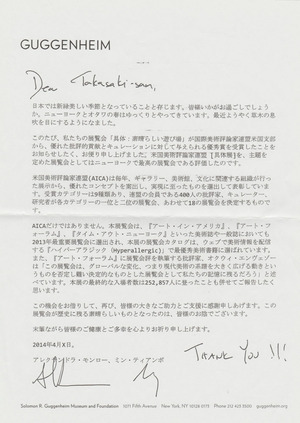 GUGGENHEIM
Dear Takasaki-san,
日本では新緑美しい季節となっていることと存じます。皆様いかがお過ごしでしょう
か。ニューヨークとオタワの春はゆっくりとやってきています。最近ようやく草木の息
吹を目にするようになりました。
このたび、私たちの展覧会「具体:素晴らしい遊び場」が国際美術評論家連盟米国支部
から、優れた批評的貢献とキュレーションに対して与えられる優秀賞を受賞したことを
お知らせしたく、お便り申し上げました。米国美術評論家連盟
を定めた展覧会としてはニューヨークで最高の展覧会である評価したのです。
米国美術評論家連盟(AICA)は毎年、ギャラリー、美術館、文化に関連する組織が行っ
た展示から、優れたコンセプトを案出し、実現に至ったものを選出して表彰していま
す。受賞カテゴリーは9種類あり、連盟の会員である400人の批評家、キュレーター、
研究者が各カテゴリーの一位と二位の展覧会、あわせて18の展覧会を決定するもので
す。
AICAだけではありません。本展覧会は、『アート・イン・アメリカ』、『アート・フ
ォーラム』、『タイム・アウト・ニューヨーク』といった美術誌や一般誌においても
2013年最重要展覧会に選出され、本展の展覧会カタログは、ウェブで美術情報を配信
する『ハイパーアラジック(Hyperallergic)』で最優秀美術書籍に選ばれています。
また、『アート・フォーラム』に展覧会評を執筆する批評家、オクウィ・エンヴェゾー
は「この展覧会は、グローバルな変化、つまり現代美術の系譜を大きく広げる動きとい
うものを否定し難い決定的なものとした展覧会として私たちの記憶に残るだろう」と述
べています。本展の最終的な入場者数は252,857人に登ったことも併せてご報告したく
思います。
この機会をお借りして、再び、皆様の大きなご助力とご支援に感謝申しあげます。この
展覧会が歴史に残る素晴らしいものとなったのは、皆様のお陰でございます。
末筆ながら皆様のご健康とご多幸を心よりお祈り申し上げます。
2014年4月X日。
アレクサンドラ・モンロー、ミン・ティアンポ
THANK YOU !!!
Solomon R. Guggenheim Museum and Foundation 1071 Fifth Avenue New York, NY 10128 0173 Phone 212 423 3500 guggenheim.org